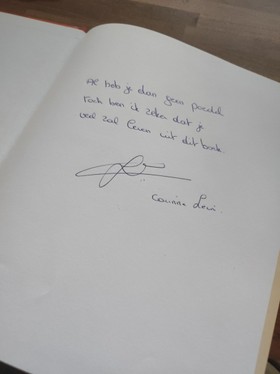 Al heb je dan geen paard
toch ben ik zeker dat je
veel zal leren uit dit boek
Corinna